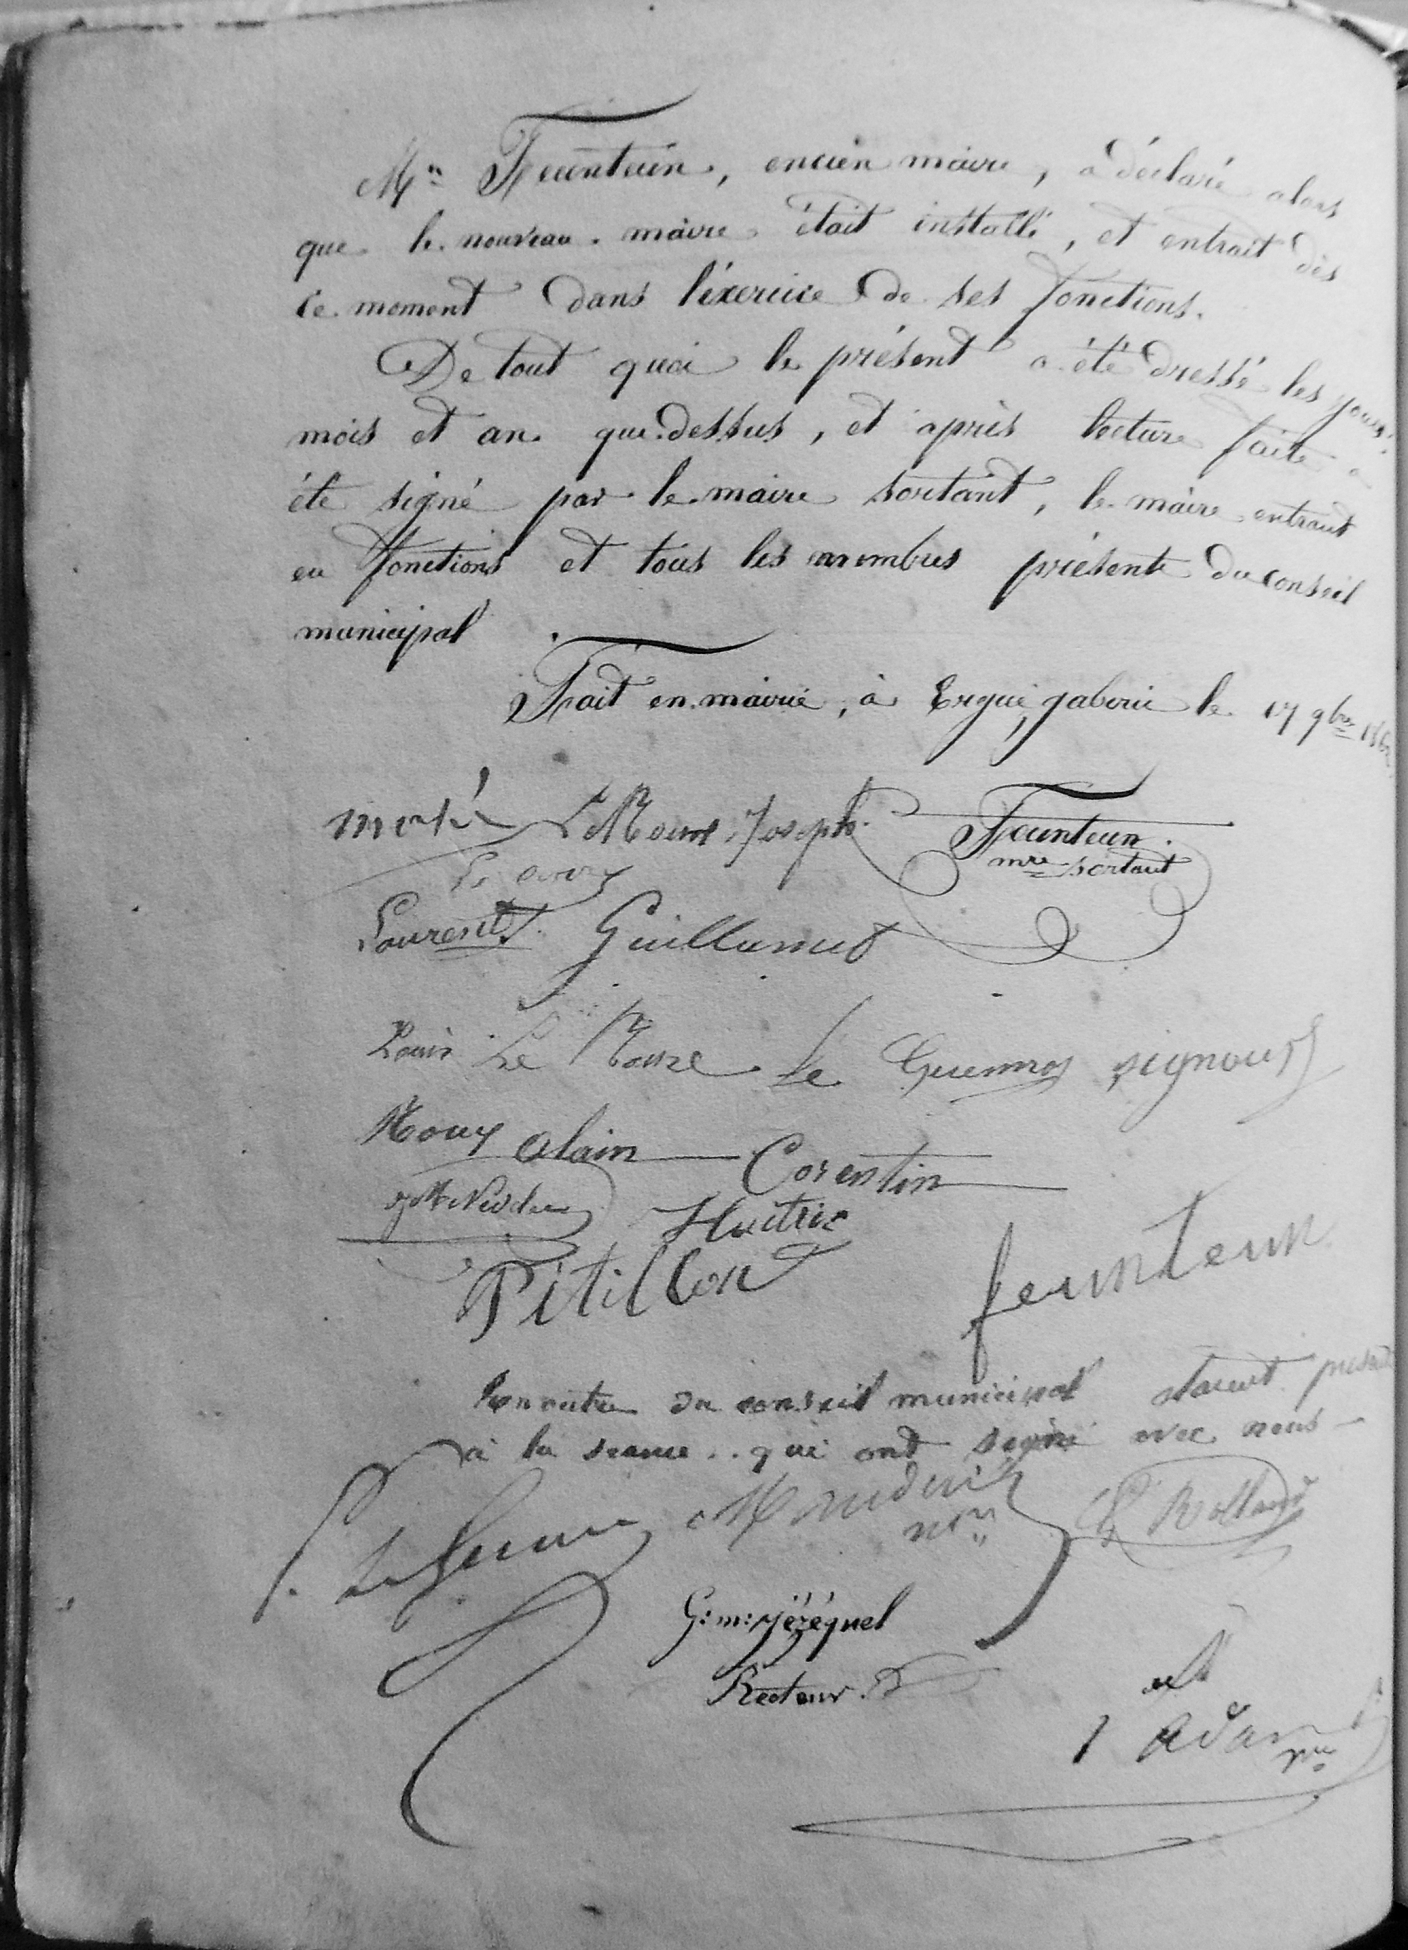 Mr Feunteun, ancien maire, a déclaré alors
que le nouveau maire était installé, et entrait dès
ce moment dans l'éxercice de ses fonctions.
De tout quoi le présent a été dressé les jour,
mois et an que dessus, et après lecture faite a
été signé par le maire sortant, le maire entrant
en fonctions et tous les membres présents du conseil
municipal.
Fait en mairie, à Ergué gabéric le 17 9bre 186
Le Moine Joseph. Feunteun.
mre sortant
Laurent Guillumet
Louis Le Rouxe Le Guennos
Rouy Alain Corentin
Huitric
Pétillon feunteun
En outre du conseil municipal étaient présents
à la séance.. qui ont signé avec nous
Rolland
G: m: jézéquel
Recteur.
Adam